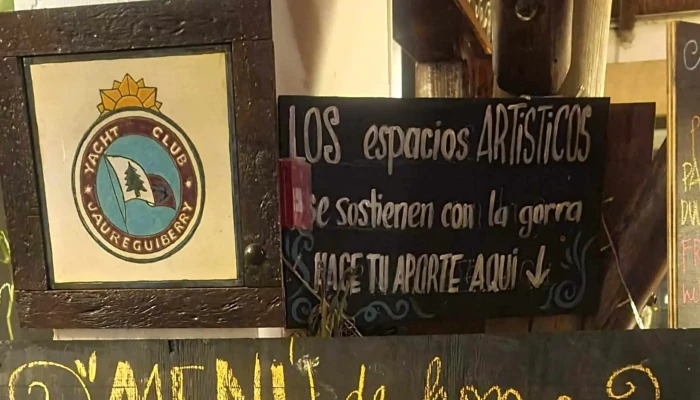 YACHT CLUB
JAUREGUIBERRY
LOS espacios ARTíSTICOS
se sostienen con la gorra
HACE TU APORTE AQUI
"MENÚ de